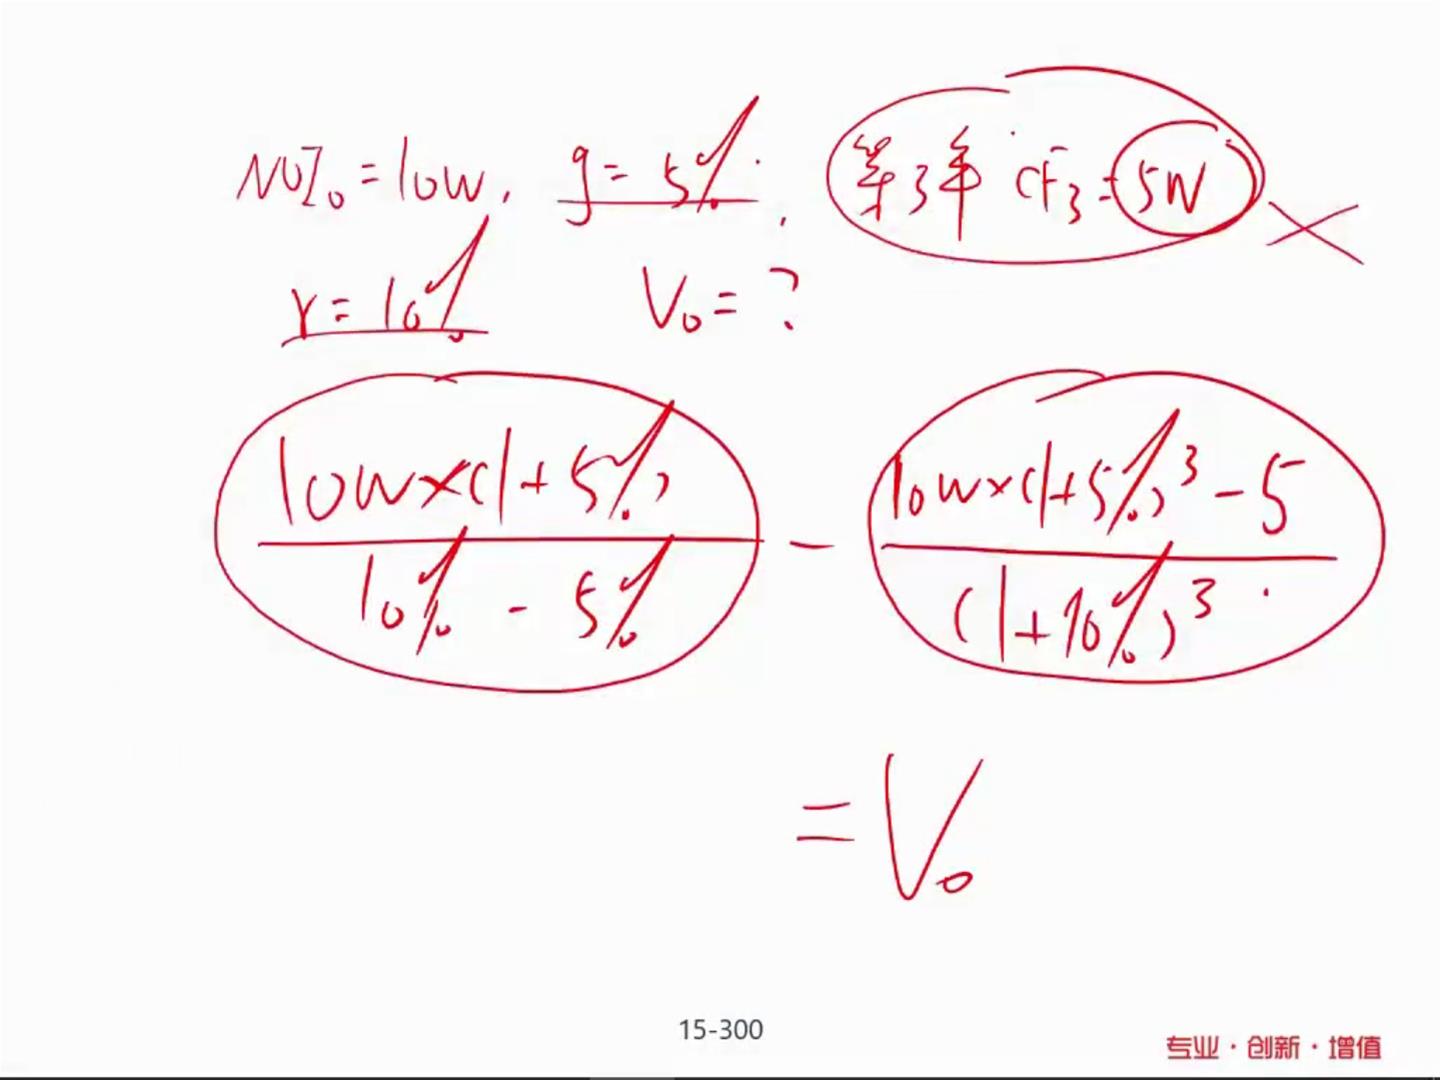 NOI₀=10W, g=5%, 第3年 CF₃=5W
r=10% V₀=?
10W×(1+5%) / 10%-5% - 10W×(1+5%)³-5 / (1+10%)³
=V₀
15-300
专业·创新·增值